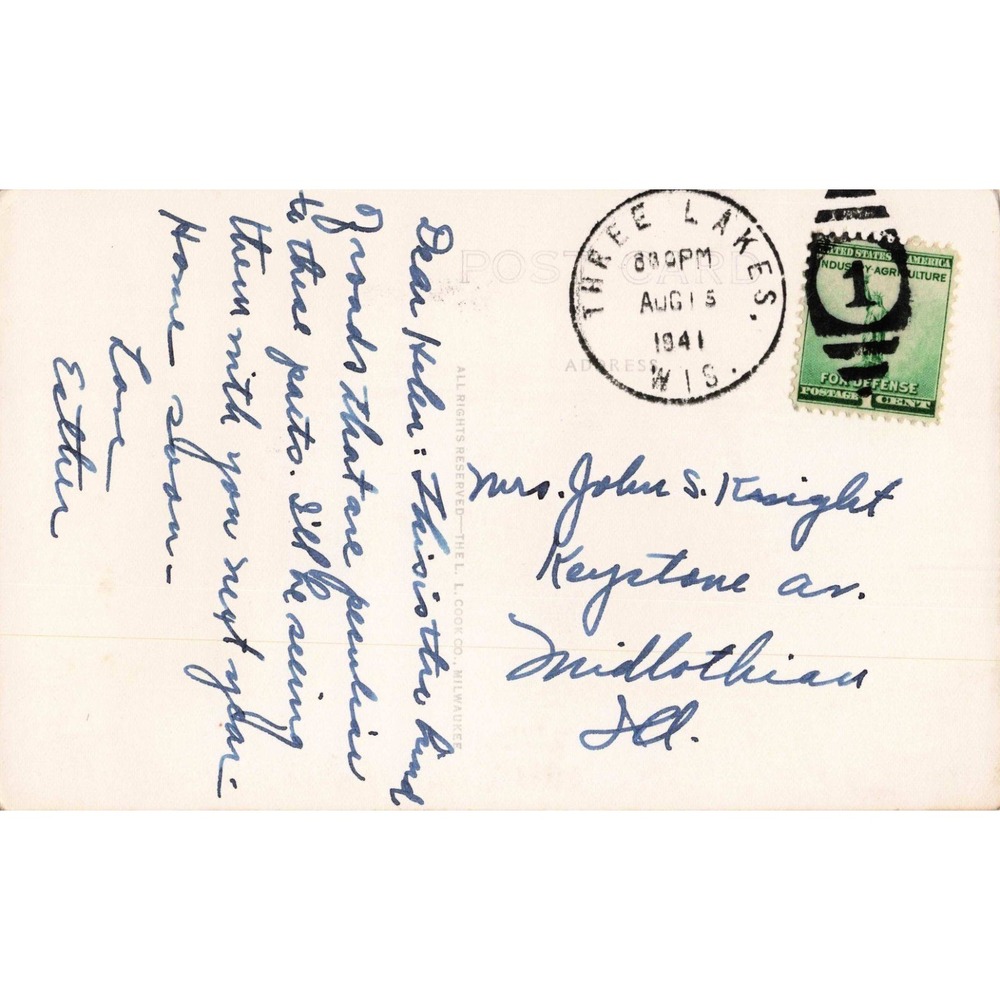 Dear Helen: This is the kind
of roads that are peculiar
to these parts. I'll be seeing
them with you next year.
Home soon –
Love
Esther
POST CARD
ADDRESS
ALL RIGHTS RESERVED—THE L. L. COOK CO., MILWAUKEE
THREE LAKES,
PM
AUG 15
1941
WIS.
UNITED STATES AMERICA
INDUSTRY-AGRICULTURE
1
FOR DEFENSE
POSTAGE 1 CENT
Mrs. John S. Knight
Keystone av.
Midlothian
Ill.